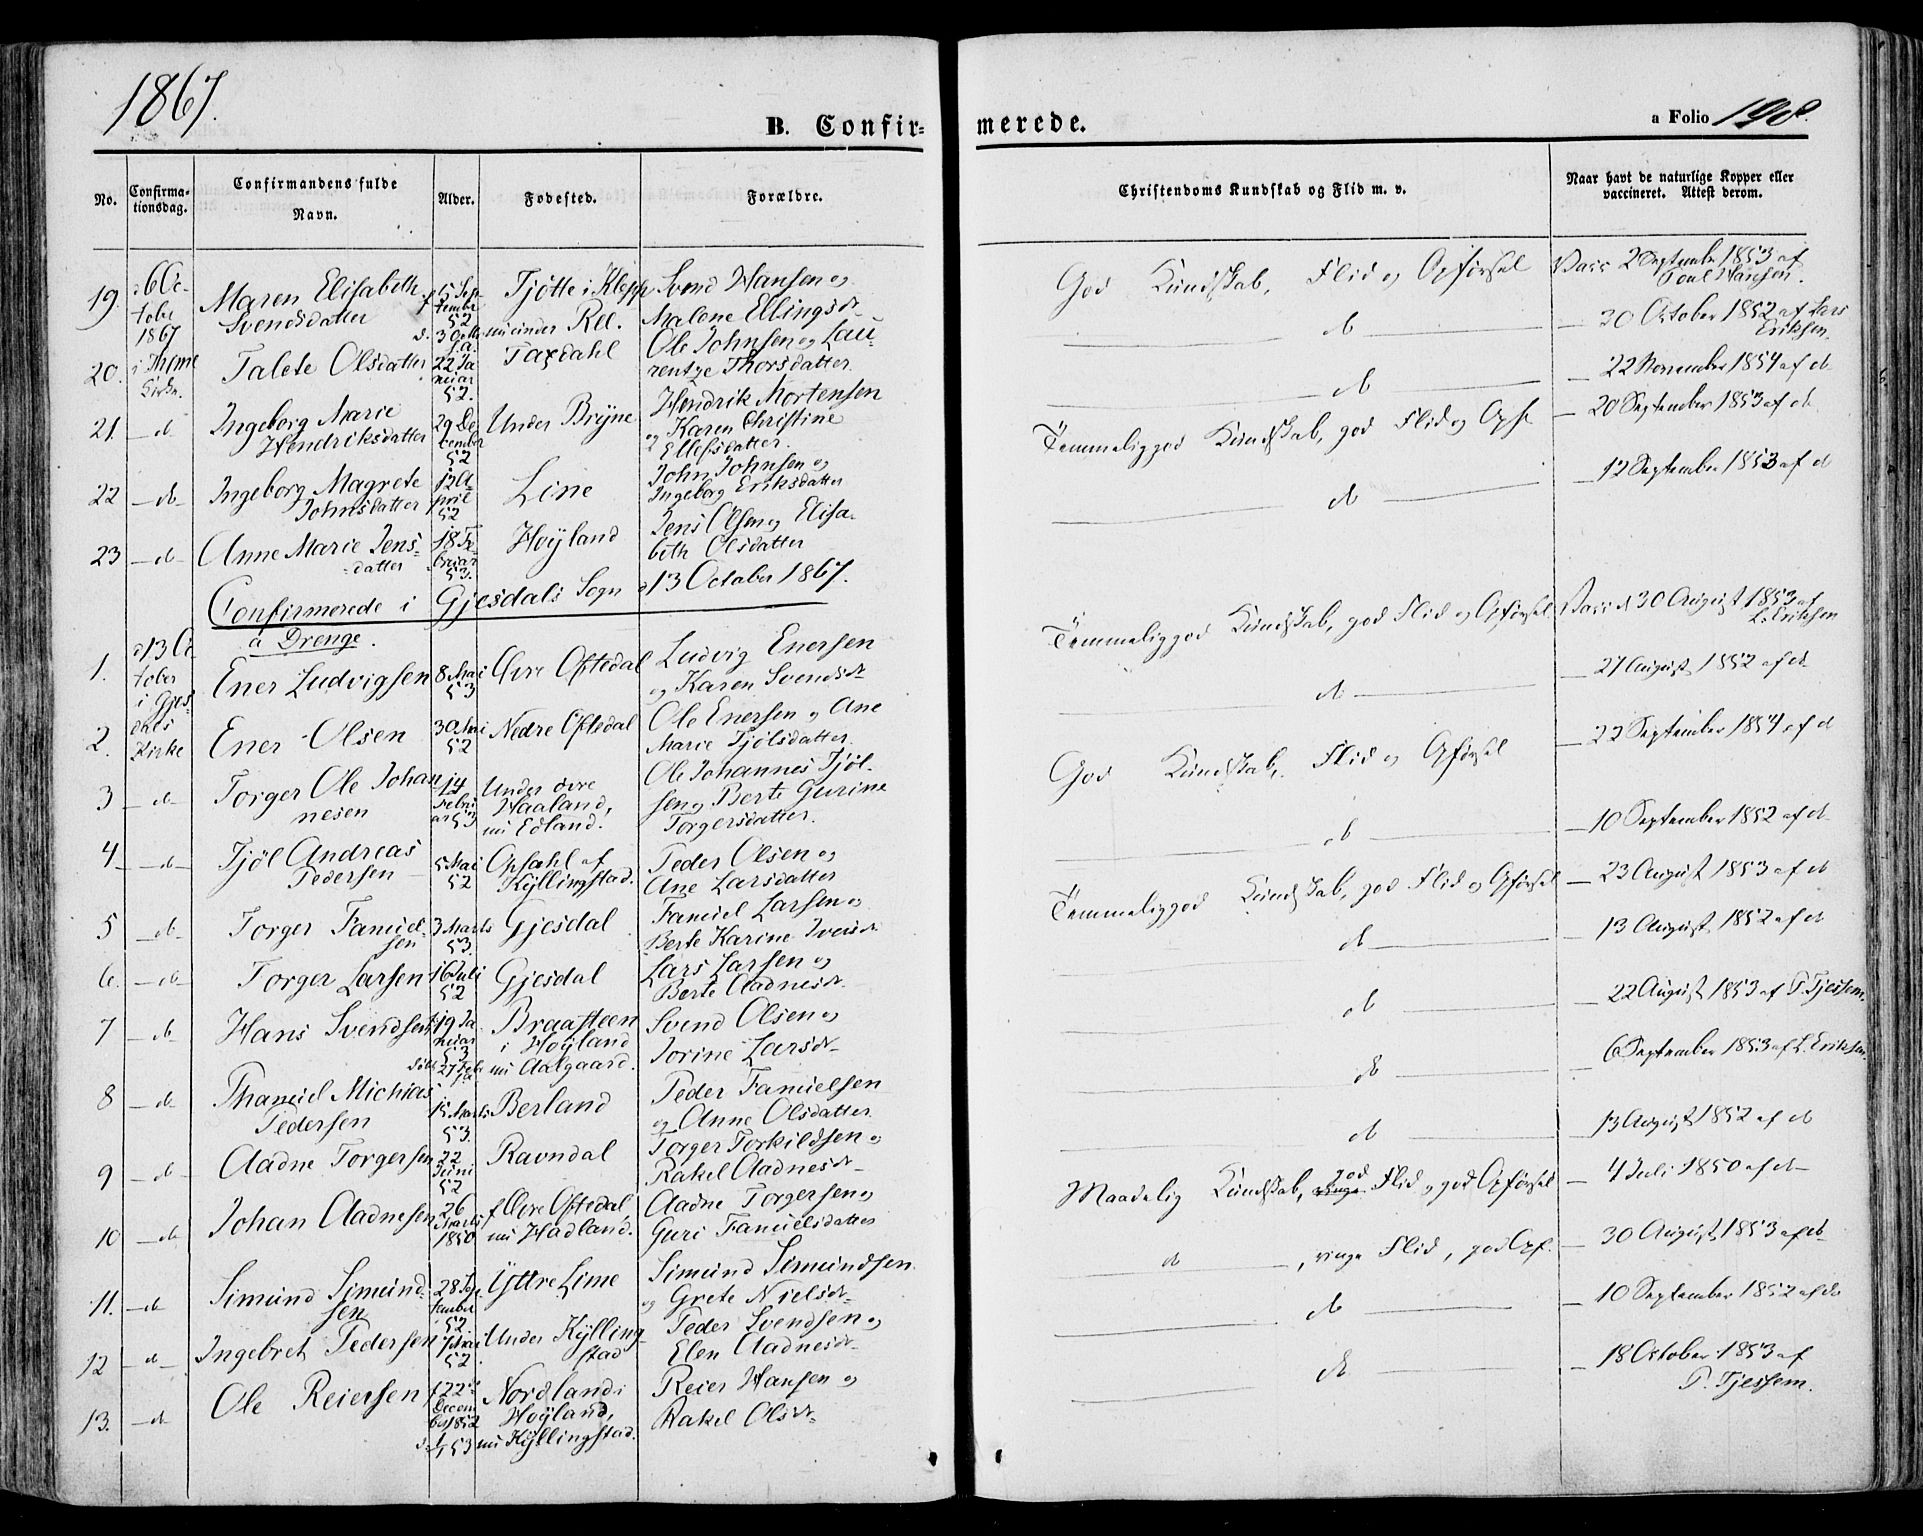 1867.
B. Confir-
merede.
a Folio 198.
No.
Confirma-
tionsdag.
Confirmandens fulde
Navn.
Alder.
Fødested.
Forældre.
Christendoms Kundskab og Flid m. v.
Naar havt de naturlige Kopper eller
vaccineret. Attest derom.
19. d 6 Oc-
tober
1867
i Thime
Kirke.
Maren Elisabeth
Svendsdatter
f 5 Sep-
tember
52
d. 3 Octb
s.a.
Tjøtte i Klepp
nu under Ree.
Svend Hansen og
Malene Ellingsdr
God Kundskab, Flid og Opførsel
Vacc 2 September 1853 af
Poul Hansen.
20. Talete Olsdatter
22 Ja
nuar
52.
Taxdahl
Ole Johnsen og Lau-
rentze Thorsdatter.
do
— 20 October 1852 af Lars
Eriksen.
21. — do
Ingeborg Marie
Hendriksdatter
29 De
cember
52
Under Bryne
Hendrik Mortensen
og Karen Christine
Ellefsdatter.
do
— 22 November 1854 af do
22 — do —
Ingeborg Magrete
Johnsdatter
12 A-
pril
52
Line
John Johnsen og
Ingeborg Eriksdatter
Temmelig god Kundskab, god Flid og Opf
— 20 September 1853 af do
23 — do —
Anne Marie Jens-
datter
18 Fe-
bruar
53.
Høyland
Jens Olsen og Elisa-
beth Olsdatter
do
— 12 September 1853 af do
Confirmerede i Gjesdals Sogn d 13 October 1867.
a Drenge.
1. d 13 Oc-
tober
i Gjes-
dals
Kirke
Ener Ludvigsen
8 Mai
53
Øvre Oftedal
Ludvig Enersen
og Karen Svendsdr
Temmelig god Kundskab, god Flid og Opførsel
Vacc d 30 August 1853 af
L. Eriksen
2. Ener Olsen
30 Mai
52
Nedre Oftedal
Ole Enersen og Ane
Marie Tjølsdatter.
do
— 27 August 1852 af do
3 — do
Torger Ole Johan
nesen
14
Febru
ar 53
Under øvre
Haaland,
nu Edland.
Ole Johannes Tjøl-
sen og Berte Gurine
Torgersdatter.
God Kundskab, Flid og Opførsel
— 22 September 1854 af do
4 — do —
Tjøl Andreas
Pedersen
5 Mai
52
Opsahl af
Kyllingstad.
Peder Olsen og
Ane Larsdatter
do
— 10 September 1852 af do
5 — do —
Torger Samuel-
sen
3 Marts
53.
Gjesdal
Samuel Larsen og
Berte Karine Iversdr
Temmelig god Kundskab, god Flid og Opførsel
— 23 August 1853 af do
6. — do —
Torger Larsen
16 Juli
52
Gjesdal
Lars Larsen og
Berte Aadnesdr.
do
— 13 August 1852 af do
7 — do
Hans Svendsen
f 19 Ja
nuar
53
døbt 27 Feb
s.a.
Braasteen
i Høyland
nu Aalgaard.
Svend Olsen og
Jorine Larsdr
do
— 22 August 1853 af P. Tjessem.
8 — do
Thamiel Michias
Pedersen
15 Marts
53.
Berland
Peder Samuelsen
og Anne Olsdatter
do
— 6 September 1853 af L. Eriksen
9 — do
Aadne Torgersen
22
Juni
52
Ravndal
Torger Torkildsen og
Rakel Aadnesdr
do
— 13 August 1852 af do
10 — do
Johan Aadnesen
26
Marts
1850
f Øvre Oftedal,
nu Hadland.
Aadne Torgersen og
Guri Samuelsdatter
Maadelig Kundskab, ringe god Flid og god Opførsel
— 4 Juli 1850 af do
11. — do
Simund Simund-
sen
28 Sep
tember
52
Yttre Lime
Simund Simundsen
og Grete Nielsdr
do , ringe Flid, god Opf.
— 30 August 1853 af do
12 — do —
Ingebret Pedersen
7 Mai
52
Under Kylling-
stad
Peder Svendsen og
Elen Aadnesdr
do
— 10 September 1852 af do
13. — do
Ole Reiersen
f 22
Decem
ber 1852
nu Kyllingstad.
Nordland i
Høyland,
Reier Hansen og
Rakel Olsdr
do
— 18 October 1853 af
P. Tjessem.